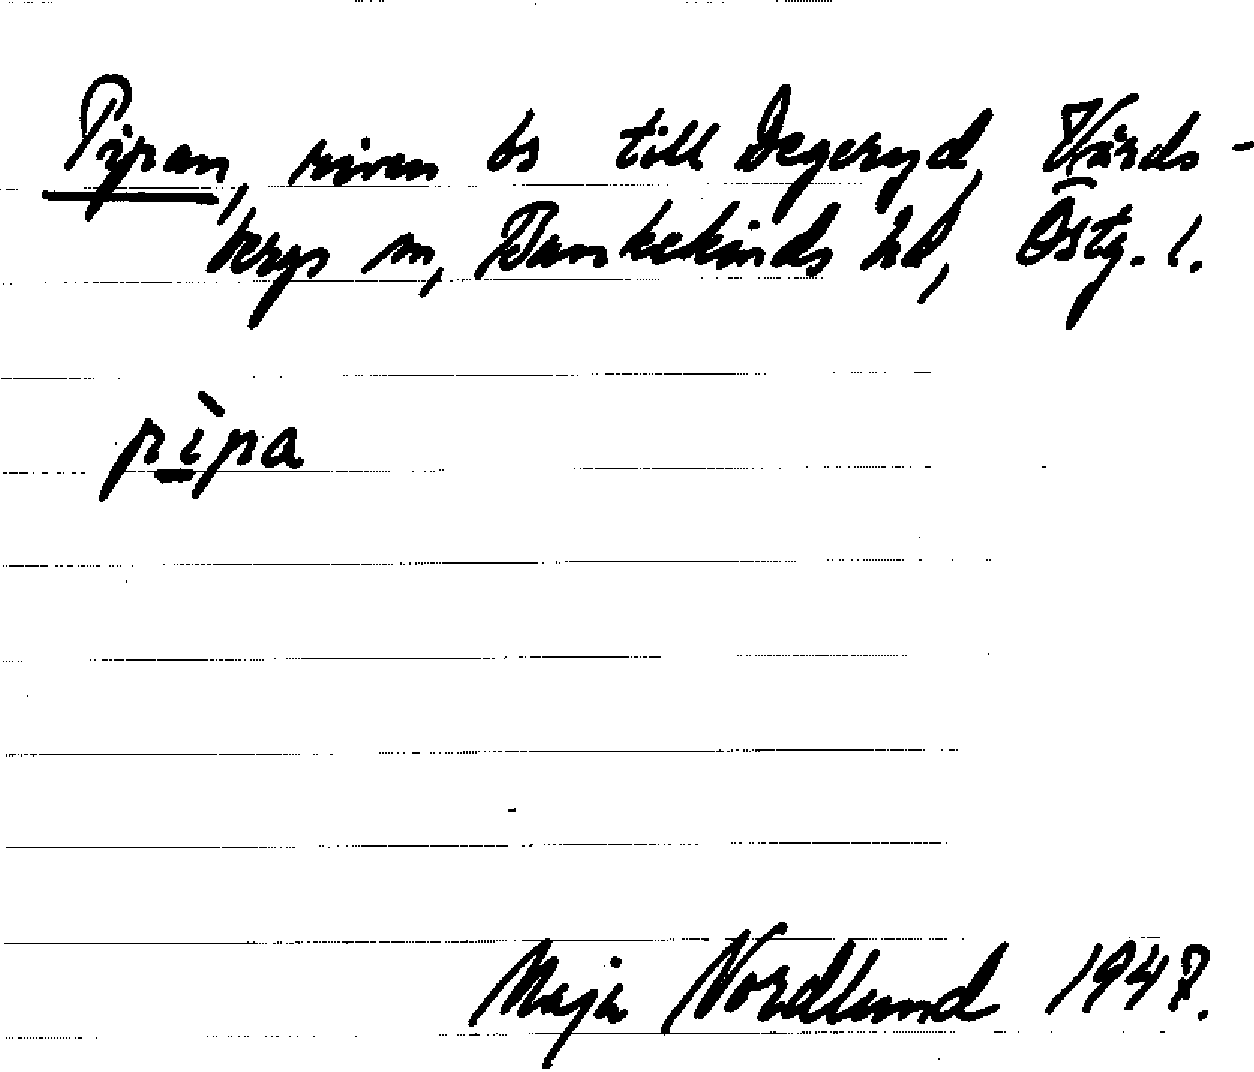 Pipan, riven bs till Degeryd, Vårds-
bergs sn, Bankekinds hd, Östg. l.
pìpa
Maja Nordlund 1947.